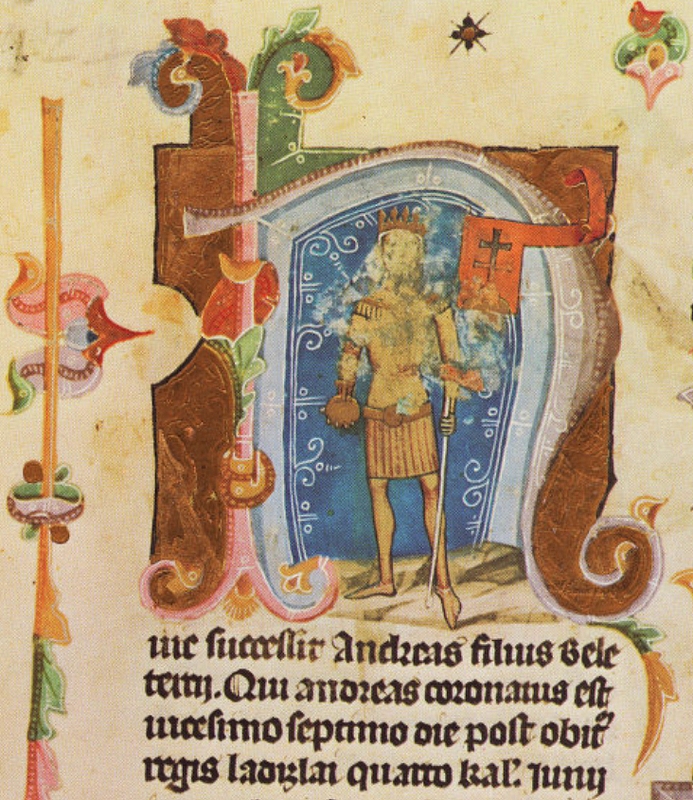 Huic successit Andreas filius Bele
tertij. Qui andreas coronatus est
uicesimo septimo die post obitū
regis ladizlai quarto kal'. Iunij